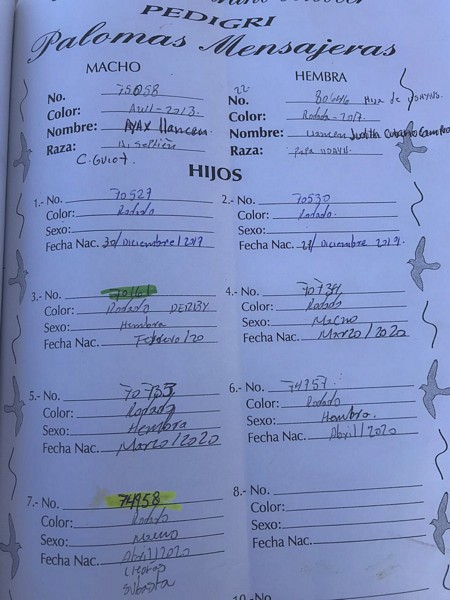 PEDIGRI
Palomas Mensajeras
MACHO
No. 75058
Color: Azul-2013.
Nombre: AYAX llancen
Raza:
C. GUIOT.
HEMBRA
22-
No. 80646 Hija de UDAYNS.
Color: Rodada-2017.
Nombre: llancen Judith Cubano Campno
Raza: papa UDAYN.
HIJOS
1.- No. 70527
Color: Rodado
Sexo:
Fecha Nac. 30/Diciembre/2019
2.- No. 70530
Color: Rodado.
Sexo:
Fecha Nac. 21/ Diciembre 2019.
3.- No.
Color: Rodado DERBY
Sexo: Hembra
Fecha Nac. Febrero/20
4.- No. 70734
Color: Rodado
Sexo: Macho
Fecha Nac. Marzo/2020
5.- No. 70733
Color: Rodado
Sexo: Hembra
Fecha Nac. Marzo/2020
6.- No. 74957.
Color: Rodado
Sexo: Hembra.
Fecha Nac. Abril/2020
7.- No. 74958
Color: Rodado
Sexo: Macho
Fecha Nac. Abril/2020
subasta
8.- No.
Color:
Sexo:
Fecha Nac.
10.- No.